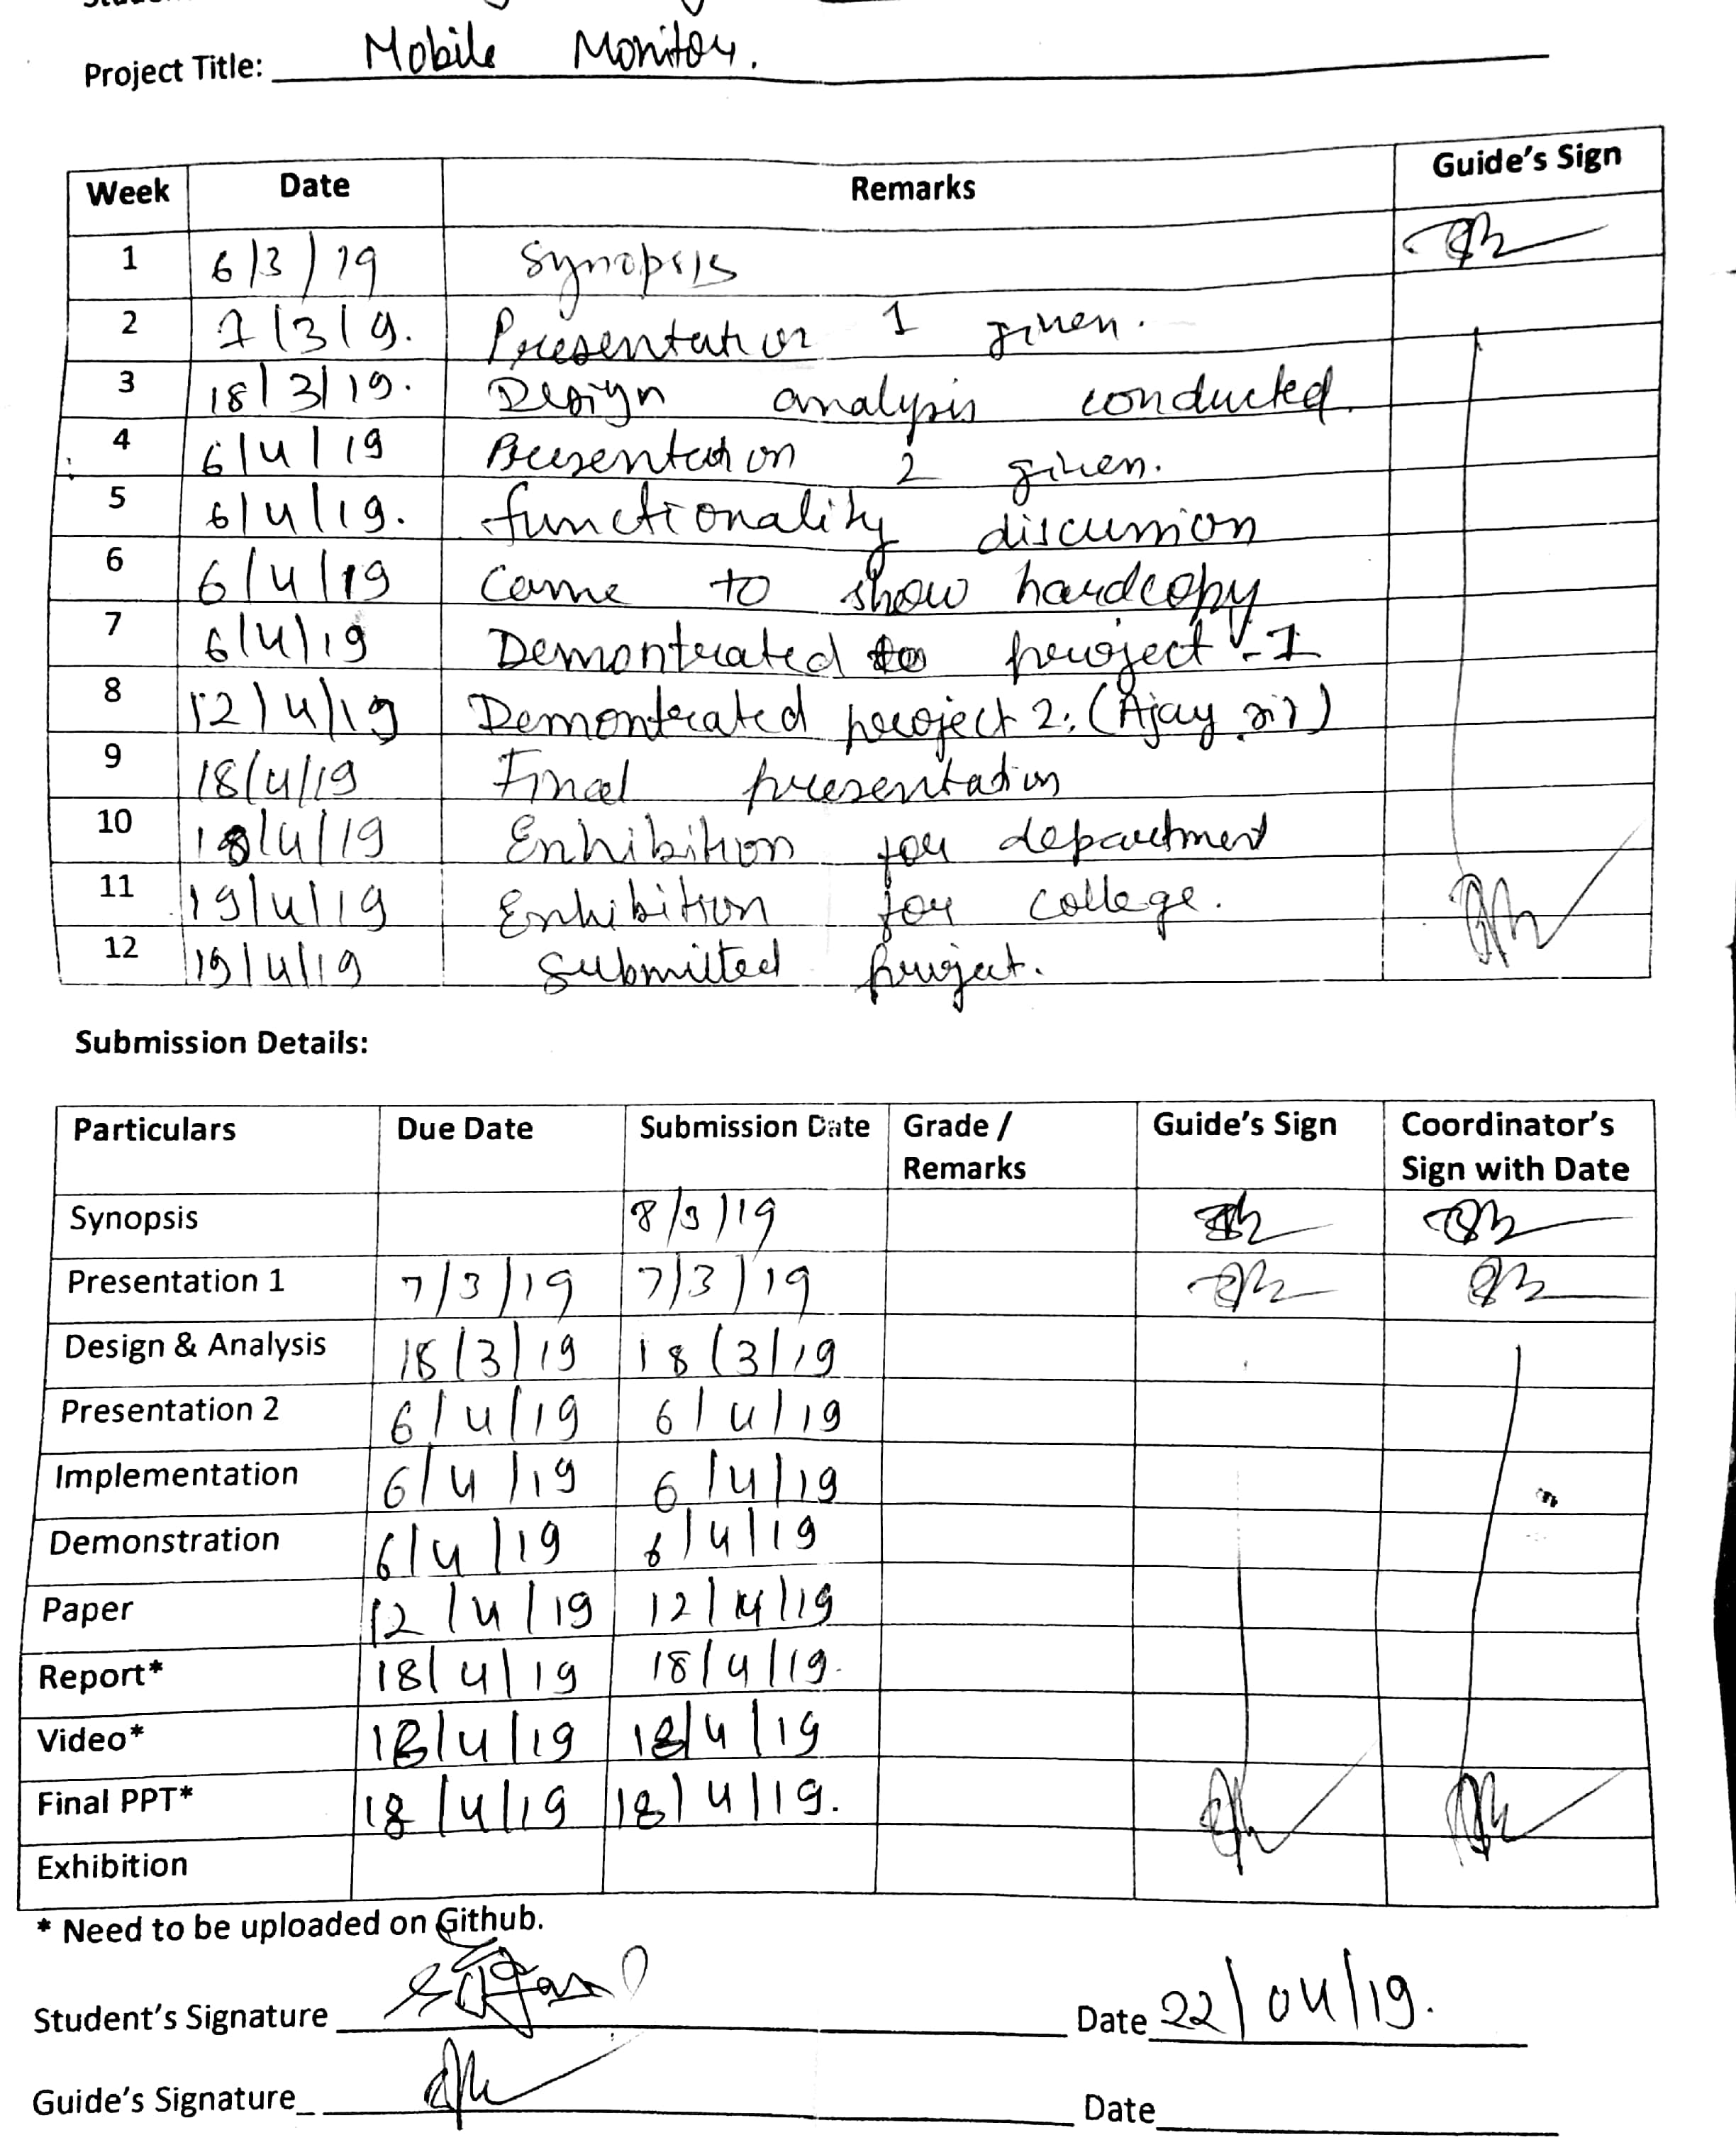 Project Title: Mobile Monitor.
Week Date Remarks Guide's Sign
1 6/3/19 Synopsis
2 7/3/19. Presentation 1 given.
3 18/3/19. Design analysis conducted.
4 6/4/19 Presentation 2 given.
5 6/4/19. functionality discussion
6 6/4/19 Came to show hardcopy
7 6/4/19 Demontrated project - 1
8 12/4/19 Demontrated project 2. (Ajay sir)
9 18/4/19 Final presentation
10 18/4/19 Enhibition for department
11 19/4/19 Enhibition for college.
12 19/4/19 Submitted project.
Submission Details:
Particulars Due Date Submission Date Grade / Remarks Guide's Sign Coordinator's Sign with Date
Synopsis 8/3/19
Presentation 1 7/3/19 7/3/19
Design & Analysis 18/3/19 18/3/19
Presentation 2 6/4/19 6/4/19
Implementation 6/4/19 6/4/19
Demonstration 6/4/19 6/4/19
Paper 12/4/19 12/4/19
Report* 18/4/19 18/4/19.
Video* 18/4/19 18/4/19
Final PPT* 18/4/19 18/4/19.
Exhibition
* Need to be uploaded on Github.
Student's Signature Date 22/04/19.
Guide's Signature Date